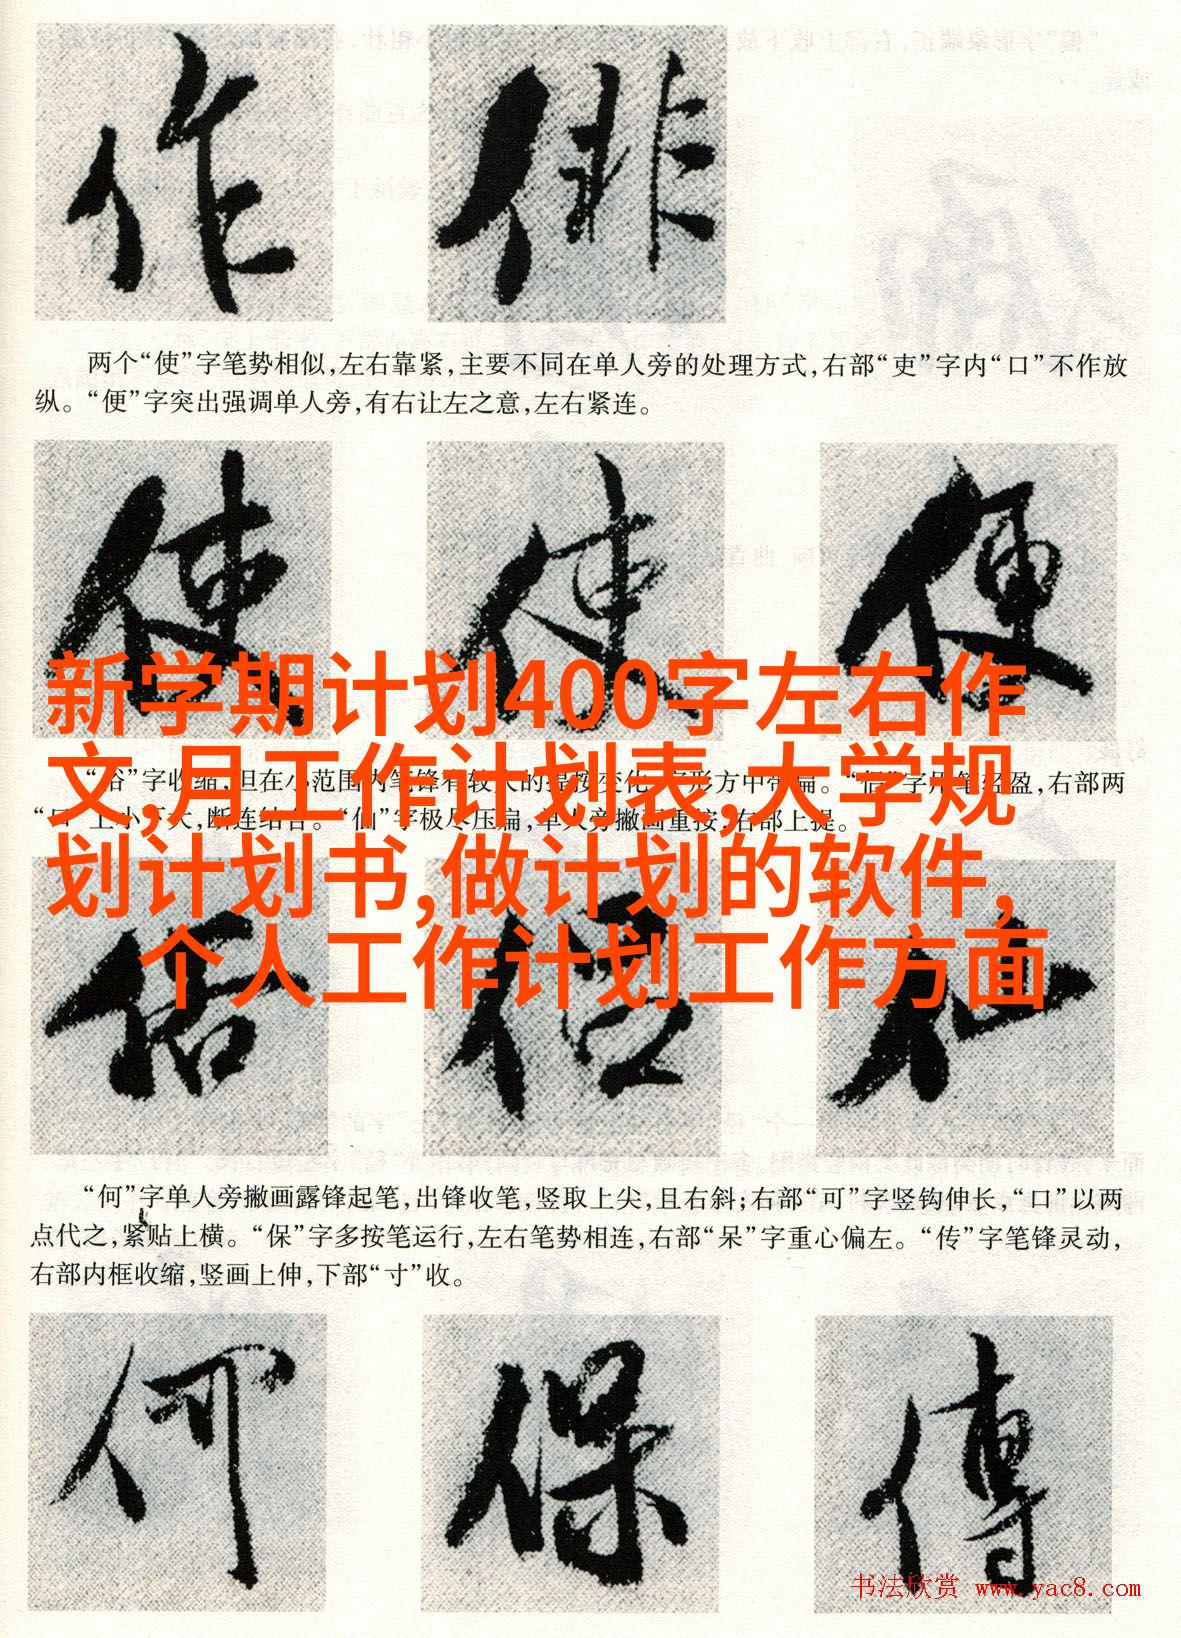 作 俳
两个“使”字笔势相似,左右靠紧,主要不同在单人旁的处理方式,右部“吏”字内“口”不作放
纵。“便”字突出强调单人旁,有右让左之意,左右紧连。
使 使 便
新学期计划400字左右作
文,月工作计划表,大学规
划计划书,做计划的软件,
个人工作计划工作方面
“俗”字收缩,但在小范围内笔锋有较大的提按变化,字形方中带扁。“侣”字用笔轻盈,右部两
“口”上小下大,断连结合。“仙”字极尽压扁,单人旁撇画重按,右部上提。
俗 侣 仙
“何”字单人旁撇画露锋起笔,出锋收笔,竖取上尖,且右斜;右部“可”字竖钩伸长,“口”以两
点代之,紧贴上横。“保”字多按笔运行,左右笔势相连,右部“呆”字重心偏左。“传”字笔锋灵动,
右部内框收缩,竖画上伸,下部“寸”收。
何 保 傳
书法欣赏 www.yac8.com